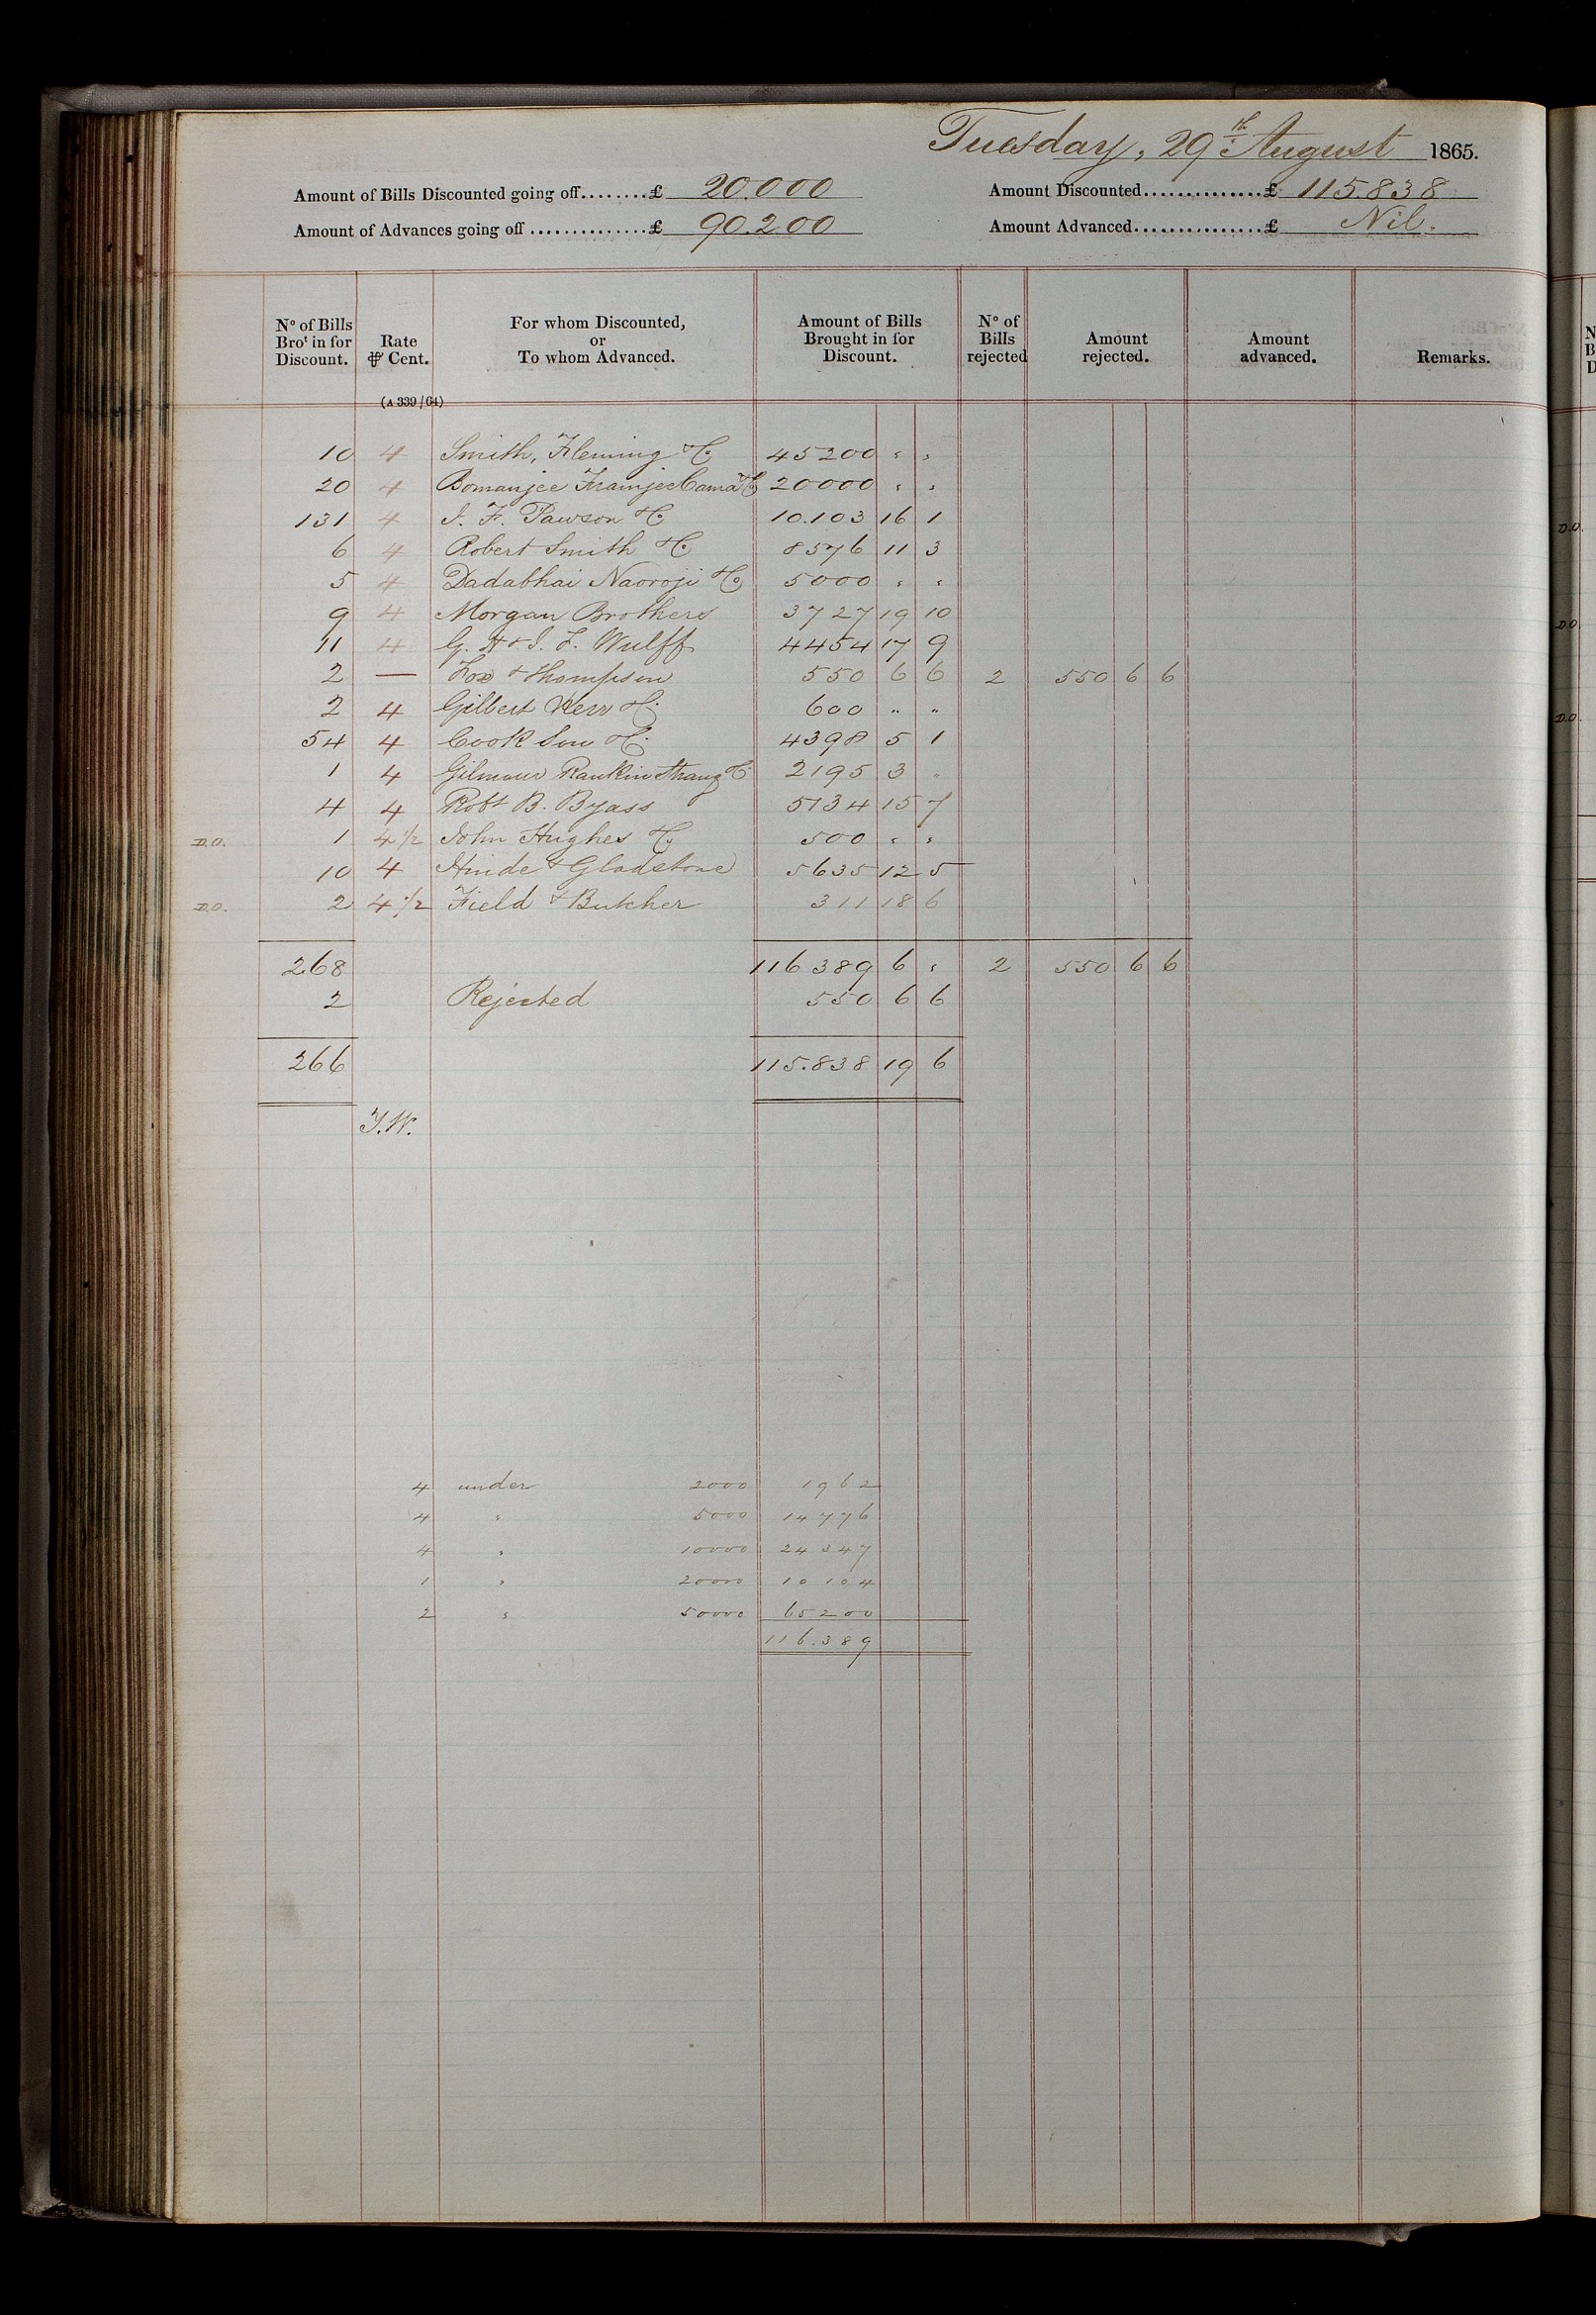 Tuesday, 29th August 1865.
Amount of Bills Discounted going off........£ 20.000 Amount Discounted..............£ 115.838
Amount of Advances going off..............£ 90.200 Amount Advanced...............£ Nil.
No of Bills Brot in for Discount. Rate ⅌ Cent. For whom Discounted, or To whom Advanced. Amount of Bills Brought in for Discount. No of Bills rejected Amount rejected. Amount advanced. Remarks.
(A 339/64)
10 4 Smith, Fleming & Co 45200 " "
20 4 Bomanjee Framjee Cama & Co 20000 " "
131 4 J. F. Pawson & Co 10.103 16 1
6 4 Robert Smith & Co 8576 11 3
5 4 Dadabhai Naoroji & Co 5000 " "
9 4 Morgan Brothers 3727 19 10
11 4 G. H & J. F. Wulff 4454 17 9
2 — Fox & Thompson 550 6 6 2 550 6 6
2 4 Gilbert Kerr & Co 600 " "
54 4 Cook Son & Co 4398 5 1
1 4 Gilmour Rankin Strang & Co 2195 3 "
4 4 Robt B. Byass 5134 15 7
D.O. 1 4 1/2 John Hughes & Co 500 " "
10 4 Hinde & Gladstone 5635 12 5
D.O. 2 4 1/2 Field & Butcher 311 18 6
268 116389 6 " 2 550 6 6
2 Rejected 550 6 6
266 115.838 19 6
T.W.
4 under 2000 1962
4 " 5000 14776
4 " 10000 24347
1 " 20000 10104
2 " 50000 65200
116.389
D.O.
D.O.
D.O.